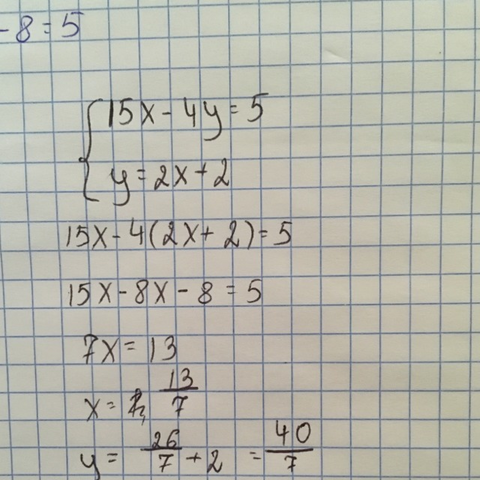 -8=5
15x-4y=5
y=2x+2
15x-4(2x+2)=5
15x-8x-8=5
7x=13
x= 13/7
y= 26/7 +2 = 40/7